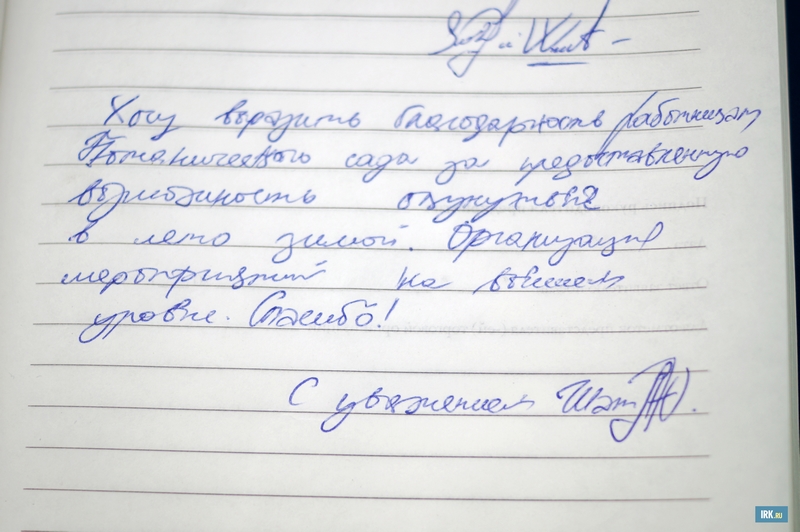 Хочу выразить благодарность работницам
Ботанического сада за предоставленную
возможность окунуться
в лето зимой. Организация
мероприятий на высшем
уровне. Спасибо!
С уважением
IRK.RU